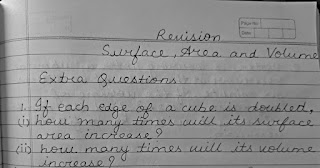 Revision
Page No.
Date
Surface, Area and Volume
Extra Questions
1. If each edge of a cube is doubled,
(i) how many times will its surface
area increase?
(ii) how many times will its volume
increase?